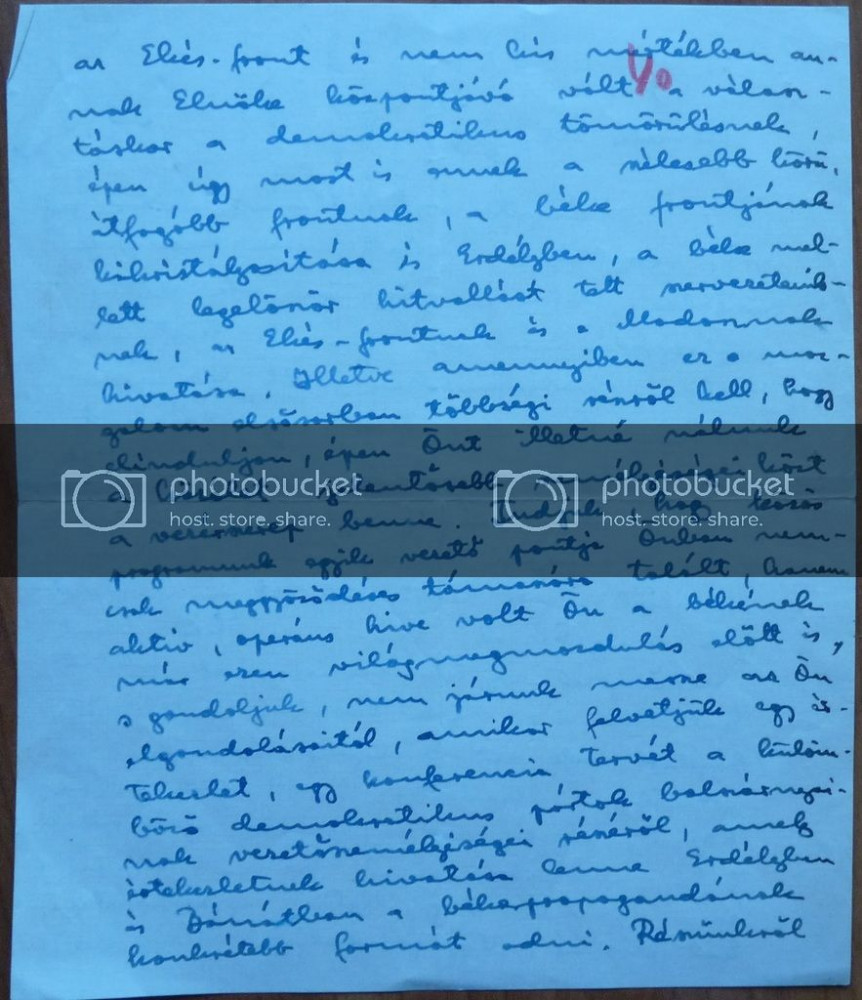 az Ekés-front is nem kis mértékben an-
Yo
nak Elnöke központjává vált a válasz-
táskor a demokratikus tömörülésnek,
épen úgy most is ennek a szélesebb körü,
átfogóbb frontnak, a béke frontjának
kikristályositása is Erdélyben, a béke mel-
lett legelőször hitvallást tett szervezeteink-
nek, az Ekés-frontnak és a Madosznak
hivatása. Illetve amennyiben ez a moz-
galom elsősorban többségi részről kell, hogy
elinduljon, épen Önt illetné nálunk
a személyiségei közt
photobucket
host. store. share.
photobucket
host. store. share.
a vezérszerep benne. Tudjuk, hogy közös
programunk egyik vezető pontja Önben nem-
csak meggyőződéses támaszára talált, hanem
aktiv, operáns hive volt Ön a békének
már ezen világmegmozdulás előtt is,
s gondoljuk, nem járunk messze az Ön
elgondolásaitól, amikor felvetjük egy ér-
tekezlet, egy konferencia tervét a külöm-
böző demokratikus pártok balszárnyai-
nak vezetőszemélyiségei részéről, amely
értekezletnek hivatása lenne Erdélyben
és Bánátban a békepropagandának
konkrétebb formát adni. Részünkről